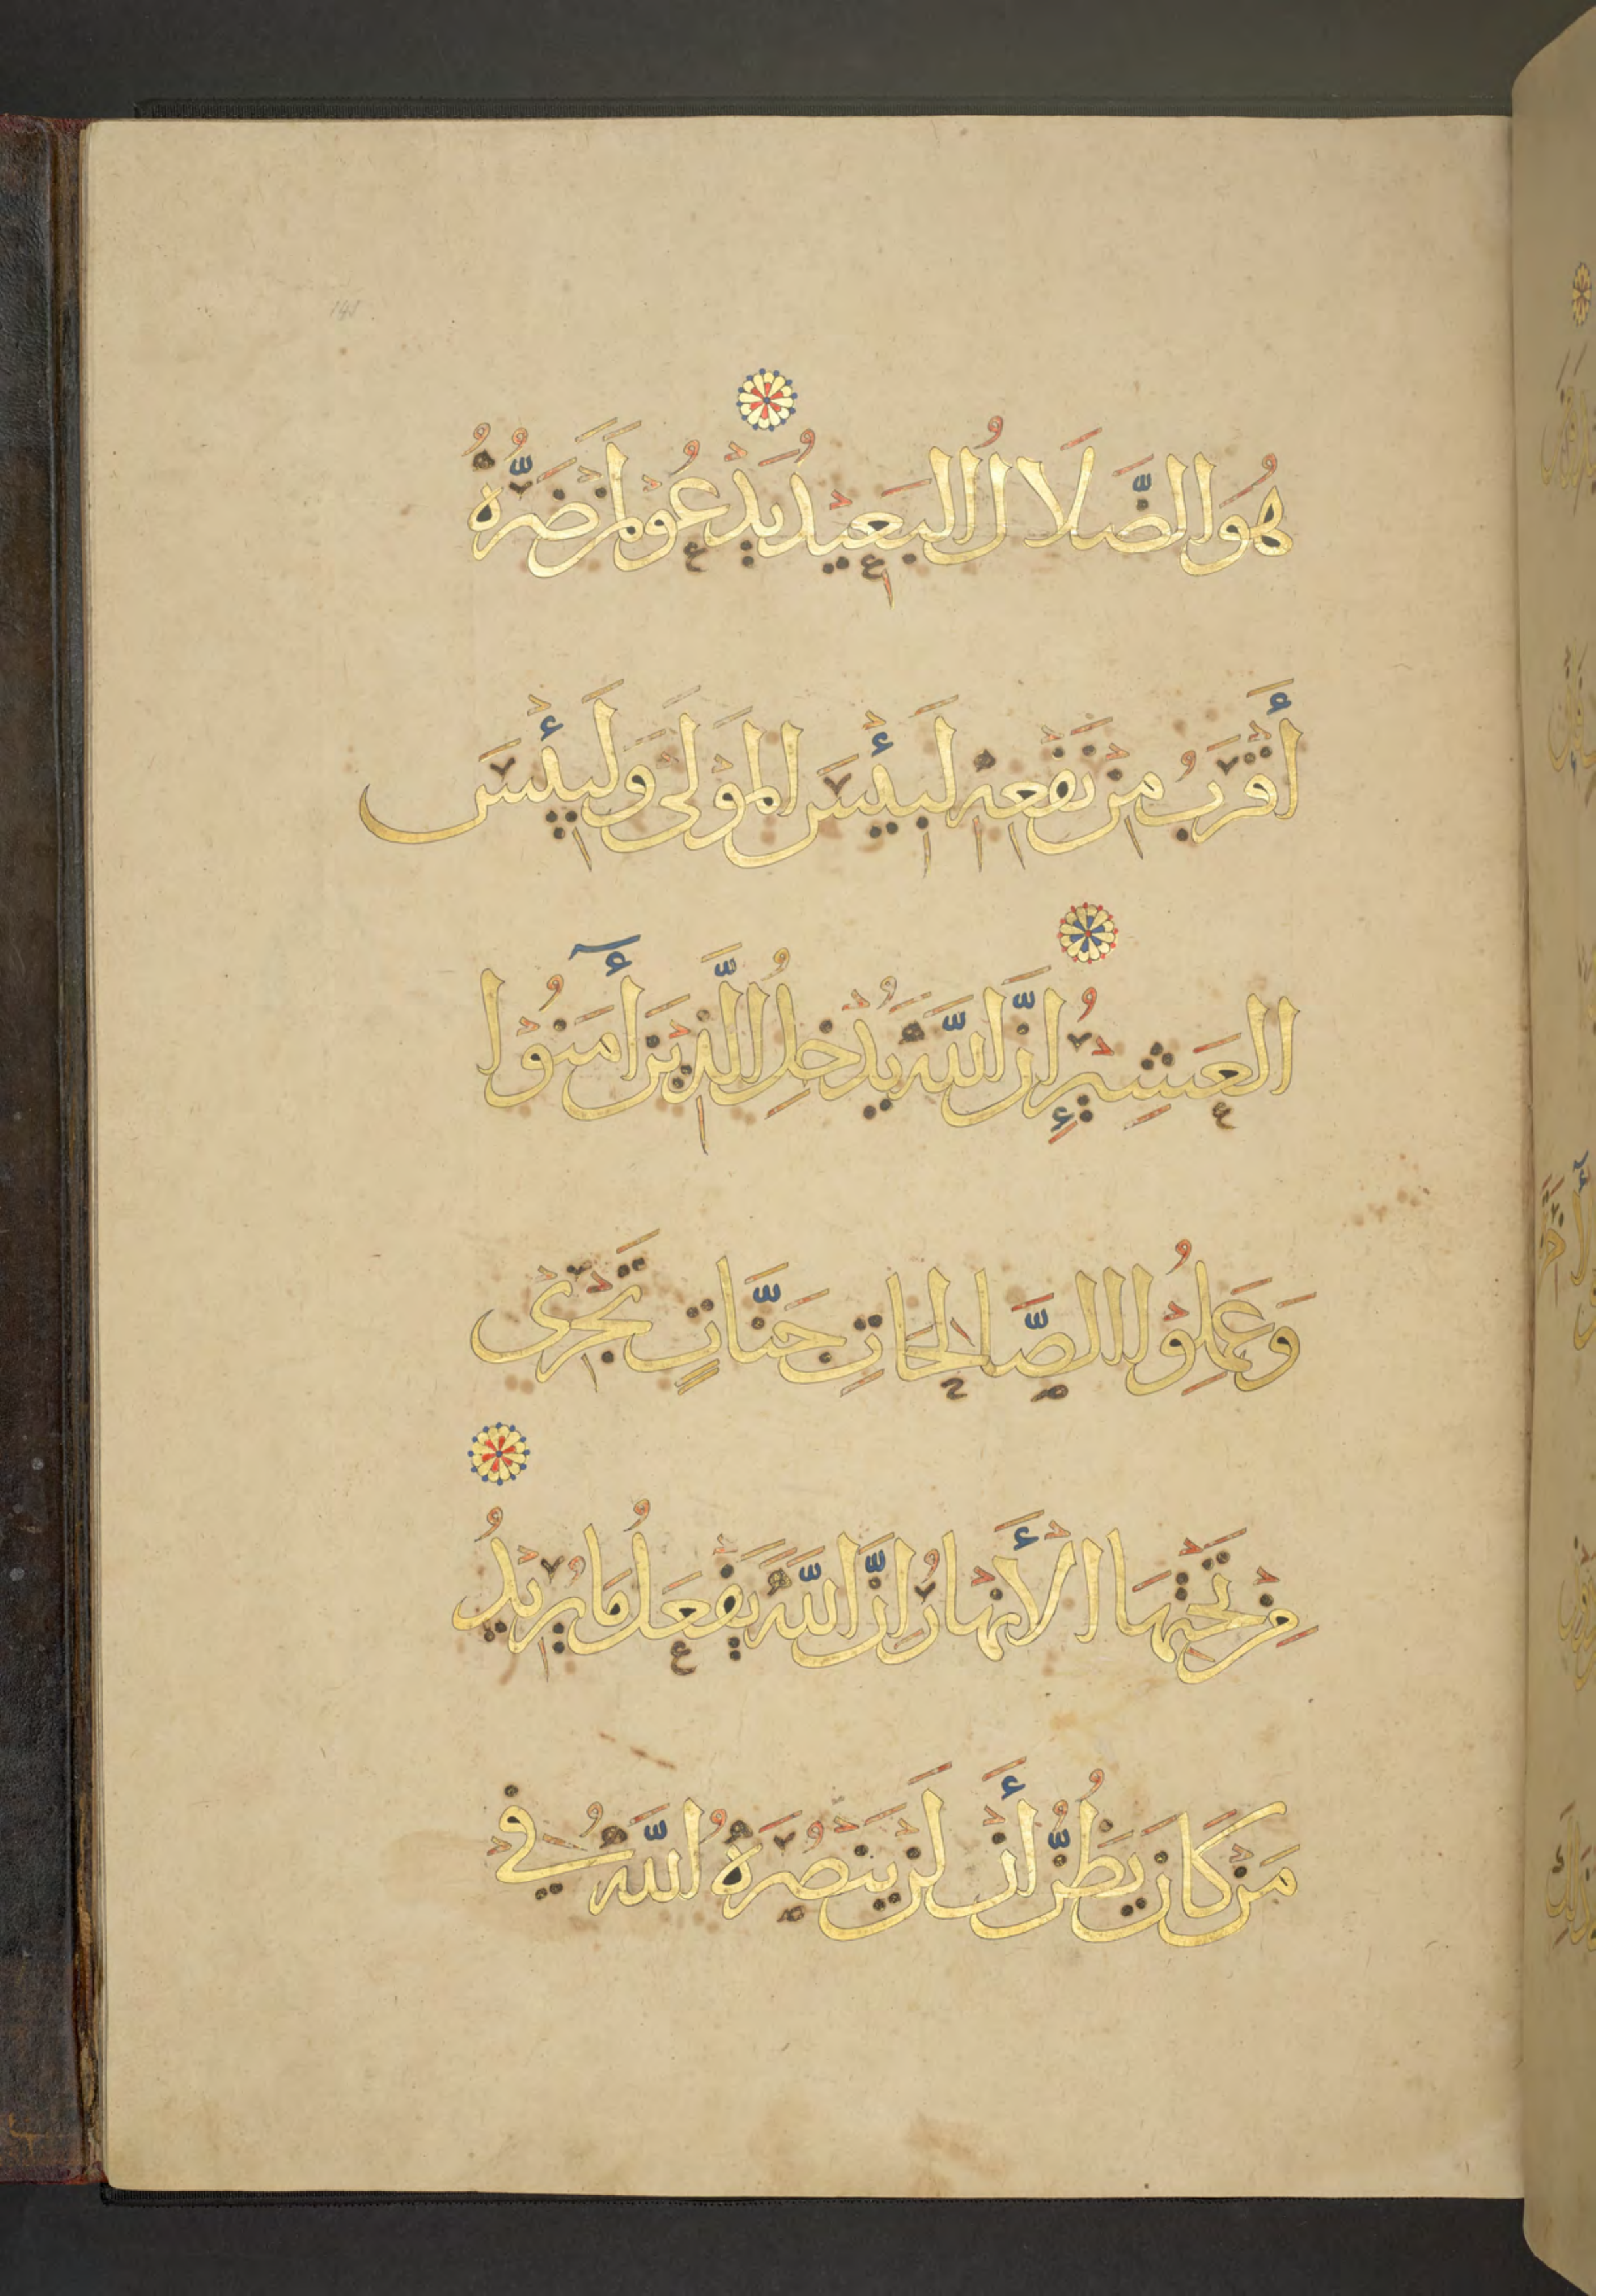 هُوَ الضَّلَالُ الْبَعِيْدُ يَدْعُوْ لَمَنْ ضَرُّهُ
أَقْرَبُ مِنْ نَفْعِهِ لَبِئْسَ الْمَوْلَى وَلَبِئْسَ
الْعَشِيْرُ إِنَّ اللَّهَ يُدْخِلُ الَّذِيْنَ أٓمَنُوْا
وَعَمِلُوْا الصَّالِحَاتِ جَنَّاتٍ تَجْرِيْ
مِنْ تَحْتِهَا الْأَنْهَارُ إِنَّ اللَّهَ يَفْعَلُ مَا يُرِيْدُ
مَنْ كَانَ يَظُنُّ أَنْ لَنْ يَنْصُرَهُ اللَّهُ فِيْ